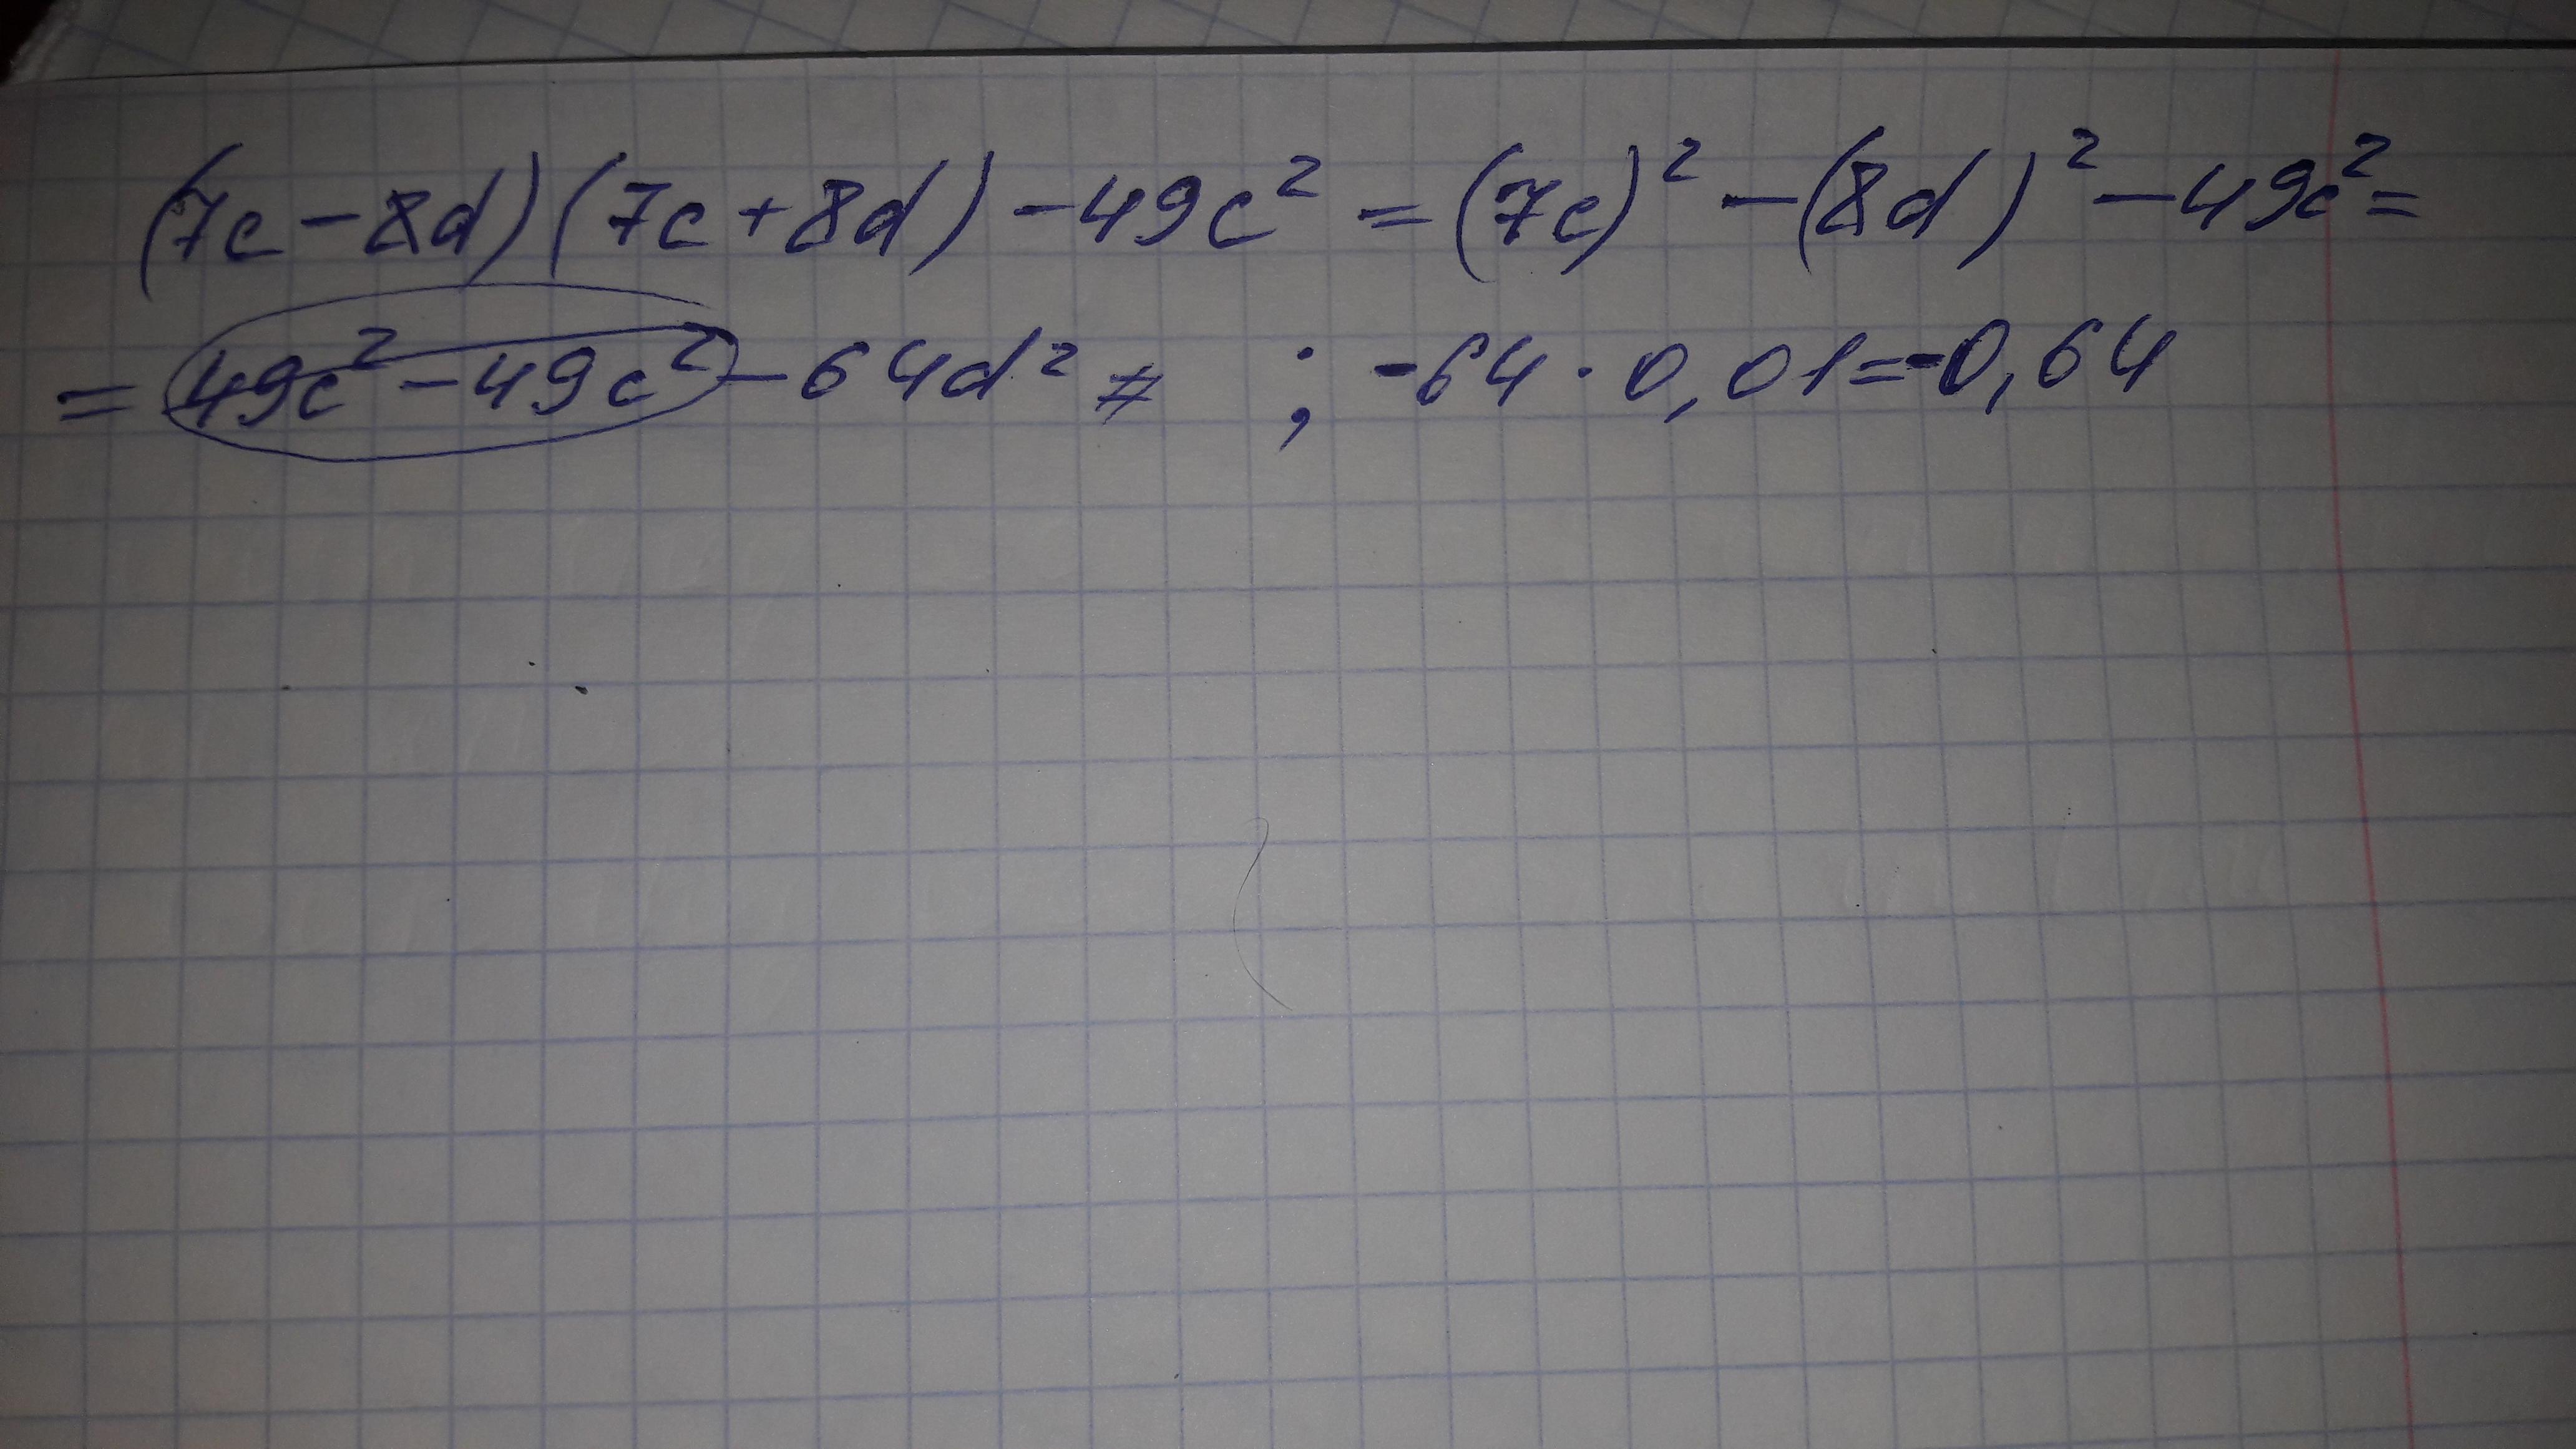 (7c-8d)(7c+8d)-49c²=(7c)²-(8d)²-49c²=
=49c²-49c²-64d² ≠ ; -64·0,01=-0,64